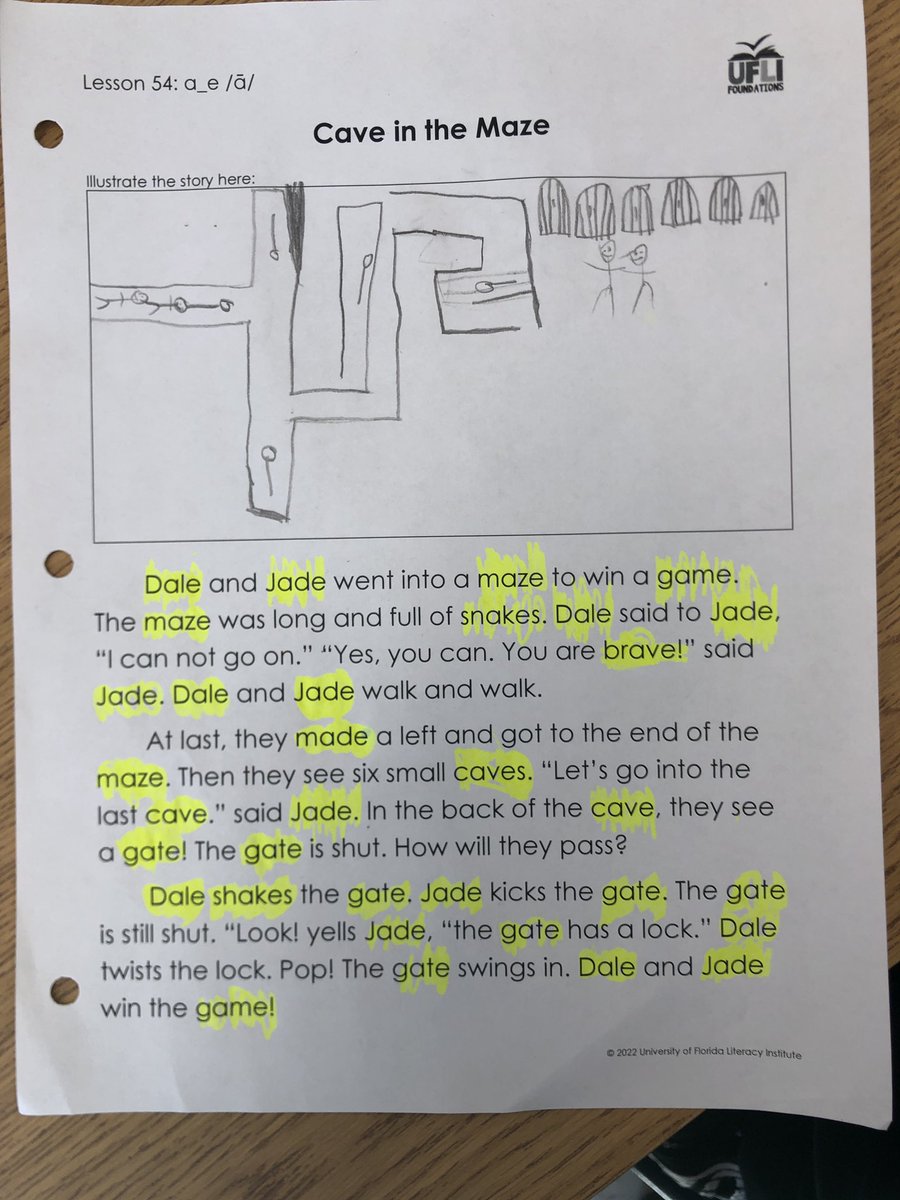 Lesson 54: a_e /ā/
UFLI
FOUNDATIONS
Cave in the Maze
Illustrate the story here:
Dale and Jade went into a maze to win a game.
The maze was long and full of snakes. Dale said to Jade,
“I can not go on.” “Yes, you can. You are brave!” said
Jade. Dale and Jade walk and walk.
At last, they made a left and got to the end of the
maze. Then they see six small caves. “Let’s go into the
last cave.” said Jade. In the back of the cave, they see
a gate! The gate is shut. How will they pass?
Dale shakes the gate. Jade kicks the gate. The gate
is still shut. “Look! yells Jade, “the gate has a lock.” Dale
twists the lock. Pop! The gate swings in. Dale and Jade
win the game!
© 2022 University of Florida Literacy Institute